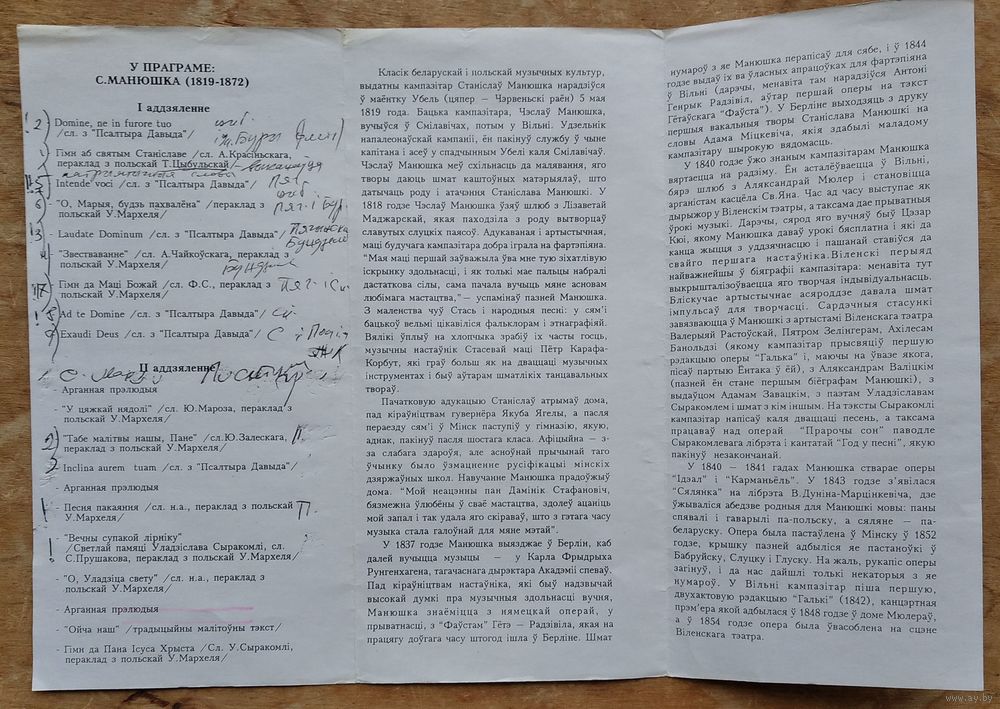 У ПРАГРАМЕ:
С.МАНЮШКА (1819-1872)
І аддзяленне
2) Domine, ne in furore tuo
/сл. з "Псалтыра Давыда"/
Гімн аб святым Станіславе /сл. А.Красіньскага,
пераклад з польскай Т.Цыбульскай/
Intende voci /сл. з "Псалтыра Давыда"/
"О, Марыя, будзь пахвалёна" /пераклад з
польскай У.Мархеля/
- Laudate Dominum /сл. з "Псалтыра Давыда"/
- "Звестваванне" /сл. А.Чайкоўскага, пераклад з
польскай У.Мархеля/
Гімн да Маці Божай /сл. Ф.С., пераклад з
польскай У.Мархеля/
Ad te Domine /сл. з "Псалтыра Давыда"/
Exaudi Deus /сл. з "Псалтыра Давыда"/
ІІ аддзяленне
- Арганная прэлюдыя
- "У цяжкай нядолі" /сл. Ю.Мароза, пераклад з
польскай У.Мархеля/
- "Табе малітвы нашы, Пане" /сл.Ю.Залескага,
пераклад з польскай У.Мархеля/
Inclina aurem tuam /сл. з "Псалтыра Давыда"/
- Арганная прэлюдыя
- Песня пакаяння /сл. н.а., пераклад з польскай
У.Мархеля/
П.
- "Вечны супакой лірніку"
/Светлай памяці Уладзіслава Сыракомлі, сл.
С.Прушакова, пераклад з польскай У.Мархеля/
- "О, Уладзіца свету" /сл. н.а., пераклад з
польскай У.Мархеля/
- Арганная прэлюдыя
- "Ойча наш" /традыцыйны малітоўны тэкст/
- Гімн да Пана Ісуса Хрыста /Сл. У.Сыракомлі,
пераклад з польскай У.Мархеля/
Класік беларускай і польскай музычных культур,
выдатны кампазітар Станіслаў Манюшка нарадзіўся
ў маёнтку Убель (цяпер — Чэрвеньскі раён) 5 мая
1819 года. Бацька кампазітара, Чэслаў Манюшка,
вучыўся ў Смілавічах, потым у Вільні. Удзельнік
напалеонаўскай кампаніі, ён пакінуў службу ў чыне
капітана і асеў у спадчынным Убелі каля Смілавічаў.
Чэслаў Манюшка меў схільнасць да малявання, яго
творы даюць шмат каштоўных матэрыялаў, што
датычаць роду і атачэння Станіслава Манюшкі. У
1818 годзе Чэслаў Манюшка ўзяў шлюб з Лізаветай
Маджарскай, якая паходзіла з роду вытворцаў
славутых слуцкіх паясоў. Адукаваная і артыстычная,
маці будучага кампазітара добра іграла на фартэпіяна.
"Мая маці першай заўважыла ўва мне тую зіхатлівую
іскрынку здольнасці, і як толькі мае пальцы набралі
дастаткова сілы, сама пачала вучыць мяне асновам
любімага мастацтва,"— успамінаў пазней Манюшка.
З маленства чуў Стась і народныя песні: у сям'і
бацькоў вельмі цікавіліся фальклорам і этнаграфіяй.
Вялікі ўплыў на хлопчыка зрабіў іх часты госць,
музычны настаўнік Стасевай маці Пётр Карафа-
Корбут, які граў больш як на дваццаці музычных
інструментах і быў аўтарам шматлікіх танцавальных
твораў.
Пачатковую адукацыю Станіслаў атрымаў дома,
пад кіраўніцтвам гувернёра Якуба Ягелы, а пасля
пераезду сям'і ў Мінск паступіў у гімназію, якую,
аднак, пакінуў пасля шостага класа. Афіцыйна — з-
за слабага здароўя, але асноўнай прычынай таго
ўчынку было ўзмацненне русіфікацыі мінскіх
дзяржаўных школ. Навучанне Манюшка прадоўжыў
дома. "Мой неацэнны пан Дамінік Стафановіч,
бязмежна ўлюбёны ў сваё мастацтва, здолеў ацаніць
мой запал і так удала яго скіраваў, што з гэтага часу
музыка стала галоўнай для мяне мэтай".
У 1837 годзе Манюшка выязджае ў Берлін, каб
далей вучыцца музыцы — у Карла Фрыдрыха
Рунгенхагена, тагачаснага дырэктара Акадэміі спеваў.
Пад кіраўніцтвам настаўніка, які быў надзвычай
высокай думкі пра музычныя здольнасці вучня,
Манюшка знаёміцца з нямецкай операй, у
прыватнасці, з "Фаўстам" Гётэ — Радзівіла, якая на
працягу доўгага часу штогод ішла ў Берліне. Шмат
нумароў з яе Манюшка перапісаў для сябе, і ў 1844
годзе выдаў іх ва ўласных апрацоўках для фартэпіяна
ў Вільні (дарэчы, менавіта там нарадзіўся Антоні
Генрык Радзівіл, аўтар першай оперы на тэкст
Гётаўскага "Фаўста"). У Берліне выходзяць з друку
першыя вакальныя творы Станіслава Манюшкі на
словы Адама Міцкевіча, якія здабылі маладому
кампазітару шырокую вядомасць.
У 1840 годзе ўжо знаным кампазітарам Манюшка
вяртаецца на радзіму. Ён асталёўваецца ў Вільні,
бярэ шлюб з Аляксандрай Мюлер і становіцца
арганістам касцёла Св.Яна. Час ад часу выступае як
дырыжор у Віленскім тэатры, а таксама дае прыватныя
ўрокі музыкі. Дарэчы, сярод яго вучняў быў Цэзар
Кюі, якому Манюшка даваў урокі бясплатна і які да
канца жыцця з удзячнасцю і пашанай ставіўся да
свайго першага настаўніка.Віленскі перыяд
найважнейшы ў біяграфіі кампазітара: менавіта тут
выкрышталізоўваецца яго творчая індывідуальнасць.
Бліскучае артыстычнае асяроддзе давала шмат
імпульсаў для творчасці. Сардэчныя стасункі
завязваюцца ў Манюшкі з артыстамі Віленскага тэатра
Валерыяй Растоўскай, Пятром Зелінгерам, Ахілесам
Банольдзі (якому кампазітар прысвяціў першую
рэдакцыю оперы "Галька" і, маючы на ўвазе якога,
пісаў партыю Ёнтака ў ёй), з Аляксандрам Валіцкім
(пазней ён стане першым біёграфам Манюшкі), з
выдаўцом Адамам Завацкім, з паэтам Уладзіславам
Сыракомлем і шмат з кім іншым. На тэксты Сыракомлі
кампазітар напісаў каля дваццаці песень, а таксама
працаваў над операй "Прарочы сон" паводле
Сыракомлевага лібрэта і кантатай "Год у песні", якую
пакінуў незакончанай.
У 1840 — 1841 гадах Манюшка стварае оперы
"Ідэал" і "Карманьёль". У 1843 годзе з'явілася
"Сялянка" на лібрэта В.Дуніна-Марцінкевіча, дзе
ўжываліся абедзве родныя для Манюшкі мовы: паны
спявалі і гаварылі па-польску, а сяляне — па-
беларуску. Опера была пастаўлена ў Мінску ў 1852
годзе, крышку пазней адбыліся яе пастаноўкі ў
Бабруйску, Слуцку і Глуску. На жаль, рукапіс оперы
загінуў, і да нас дайшлі толькі некаторыя з яе
нумароў. У Вільні кампазітар піша першую,
двухактовую рэдакцыю "Галькі" (1842), канцэртная
прэм'ера якой адбылася ў 1848 годзе ў доме Мюлераў,
а ў 1854 годзе опера была ўвасоблена на сцэне
Віленскага тэатра.
www.ay.by